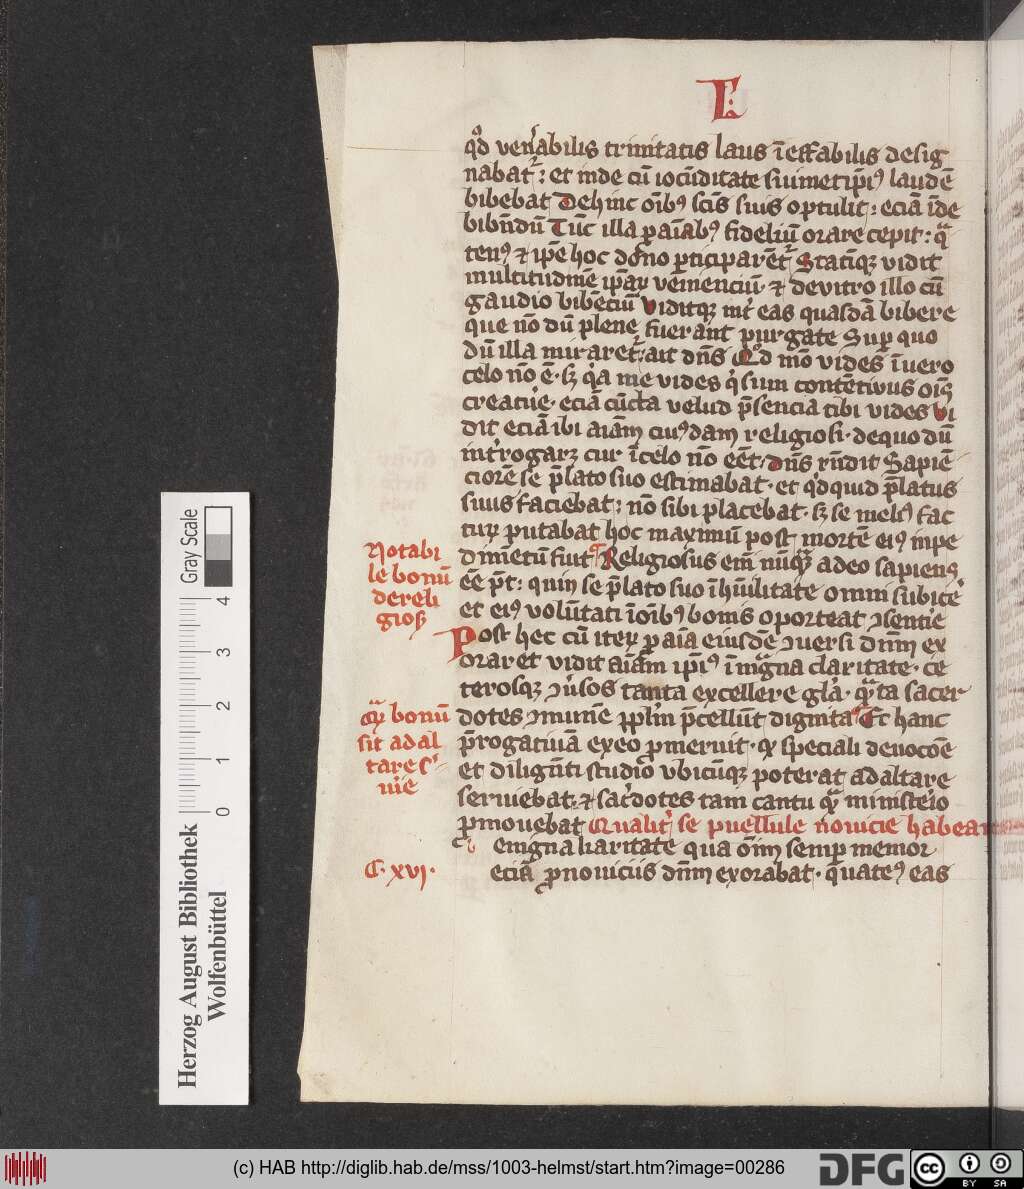 L:
qd̾ ven̾abilis trinitatis laus ī effabilis desig
nabat᷑: et inde cū iocūditate suimetip̄iꝰ laudē
bibebat Dehinc oībꝰ scīs suis optulit: eciā īde
bibn̄dū Tūc illa ꝓ aīabꝰ fideliū orare cepit: q̄
tenꝰ ⁊ ip̄e hoc dono ꝑticiparēt᷑ Statīqꝫ vidit
multitudinē ip̄aꝝ veniencium ⁊ de vitro illo cū
gaudio bibēciū Viditqꝫ int̾ eas quasdā bibere
que nō dū plene fuerant purgate Suꝑ quo
dū illa miraret᷑: ait dn̄s Qd̾ mō vides ī uero
celo nō ē· sꝫ qͥa me vides qͥ sum contētivus oīs
creatur̾e· eciā cūcta velud p̄sencia tibi vides Vi
dit eciā ibi aīam cuiꝰdam religiosi· de quo dū
int̾rogaꝫ cur ī celo nō eēt· dn̄s rn̄dit Sapiē
ciorē se p̄lato suo estimabat· et qͥdquid p̄latus
suus faciebat: nō sibi placebat· sꝫ se melꝰ fac
tuꝝ putabat hoc maximū post mortē eiꝰ inpe
dimētū fuit Religiosus em̄ nūqᷓ adeo sapiens
eē p̄t: quin se p̄lato suo ī hūilitate omni subice᷑
et eiꝰ volūtati ī oībꝰ bonis oporteat ꝯsentir̾e
Post hec cū iteꝝ ꝓ aīa eiusdē ꝯversi dnm ex
oraret vidit aīam ip̄iꝰ ī mᷓgna claritate· ce
terosqꝫ ꝯv̾sos tanta excellere gl̾a· qᷓ̄ta sacer
dotes ꝯmunē ppl̄m p̄cellūt dignita Et hanc
p̄rogatiuā ex eo ꝓmeruit· qꝫ speciali deuocōe
et dilign̄ti studio vbicūqꝫ poterat ad altare
seruiebat· ⁊ sac̾dotes tam cantu qᷓ ministerio
ꝓmouebat Qualit̾ se puellule nouicie habeant
E migna karitate qua oīm semꝑ memor
eciā ꝓ nouiciis dn̄m exorabat· quatenꝰ eas
Notabi
le bonū
de reli
gioꝫ
Qꝫ bonū
sit ad al
tare s̾
uir̾e
C· xvj·
Gray Scale
0 1 2 3 4
Herzog August Bibliothek
Wolfenbüttel
(c) HAB http://diglib.hab.de/mss/1003-helmst/start.htm?image=00286
DFG
cc BY SA